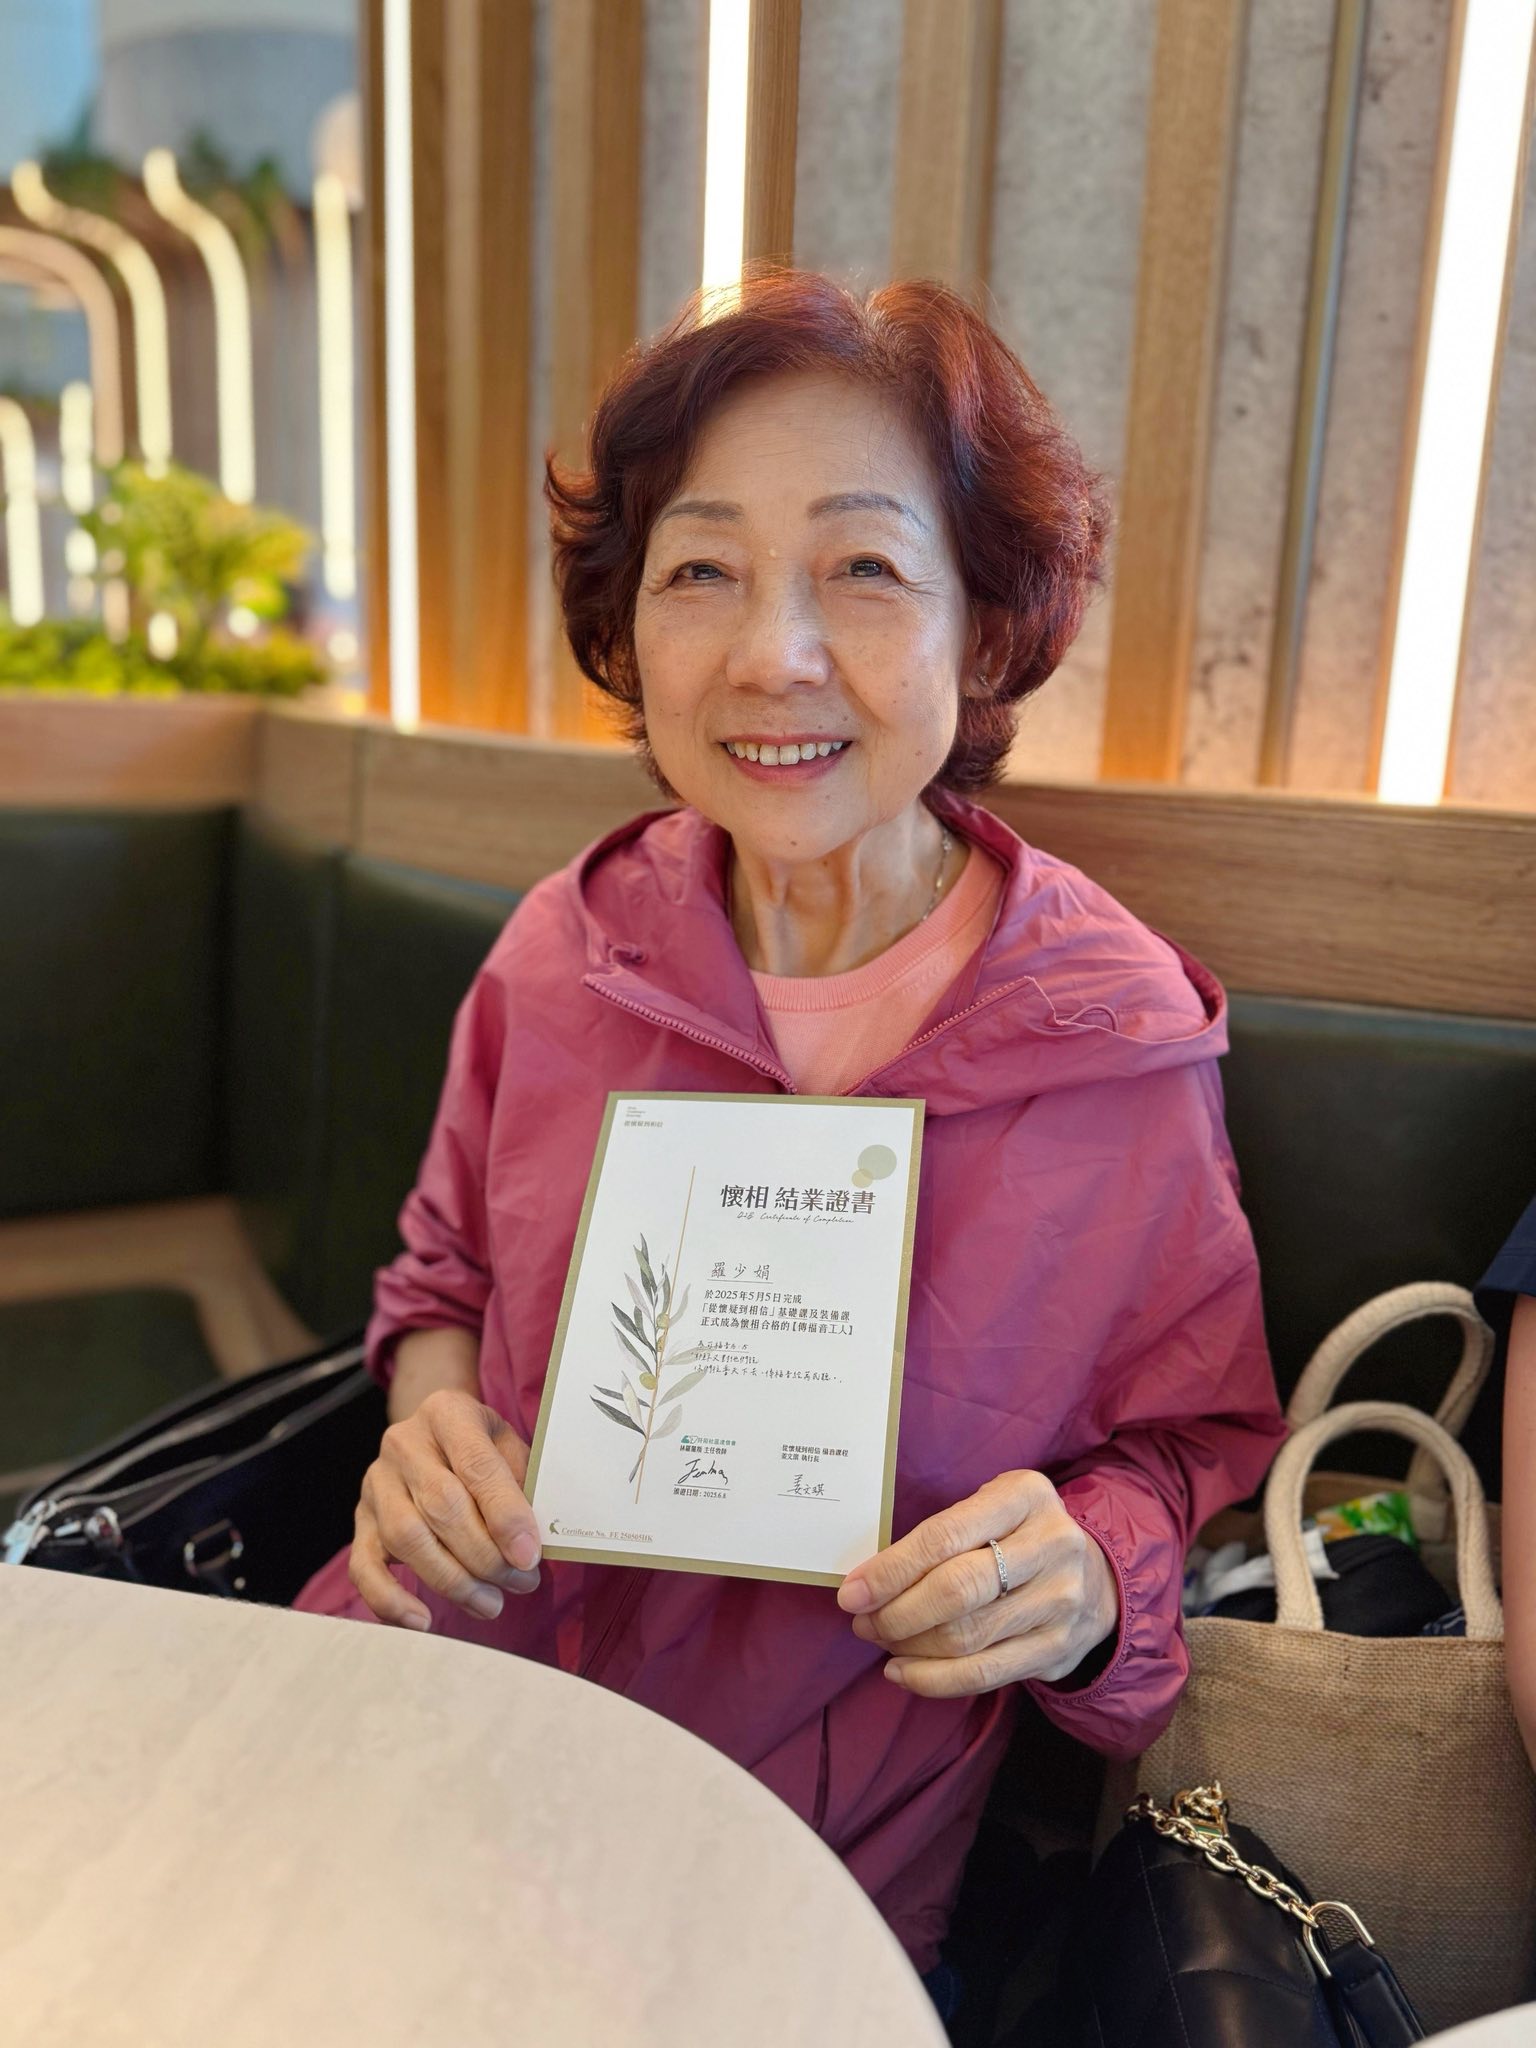 從懷疑到相信
懷相 結業證書
D2B Certificate of Completion
羅少娟
於2025年5月5日完成
「從懷疑到相信」基礎課及裝備課
正式成為懷相合格的【傳福音工人】
馬可福音
你們往普天下去、傳福音給萬民聽。
主任牧師
從懷疑到相信 福音課程
姜文琪 執行長
姜文琪
頒證日期：2025.6.8
Certificate No. FE 250505HK